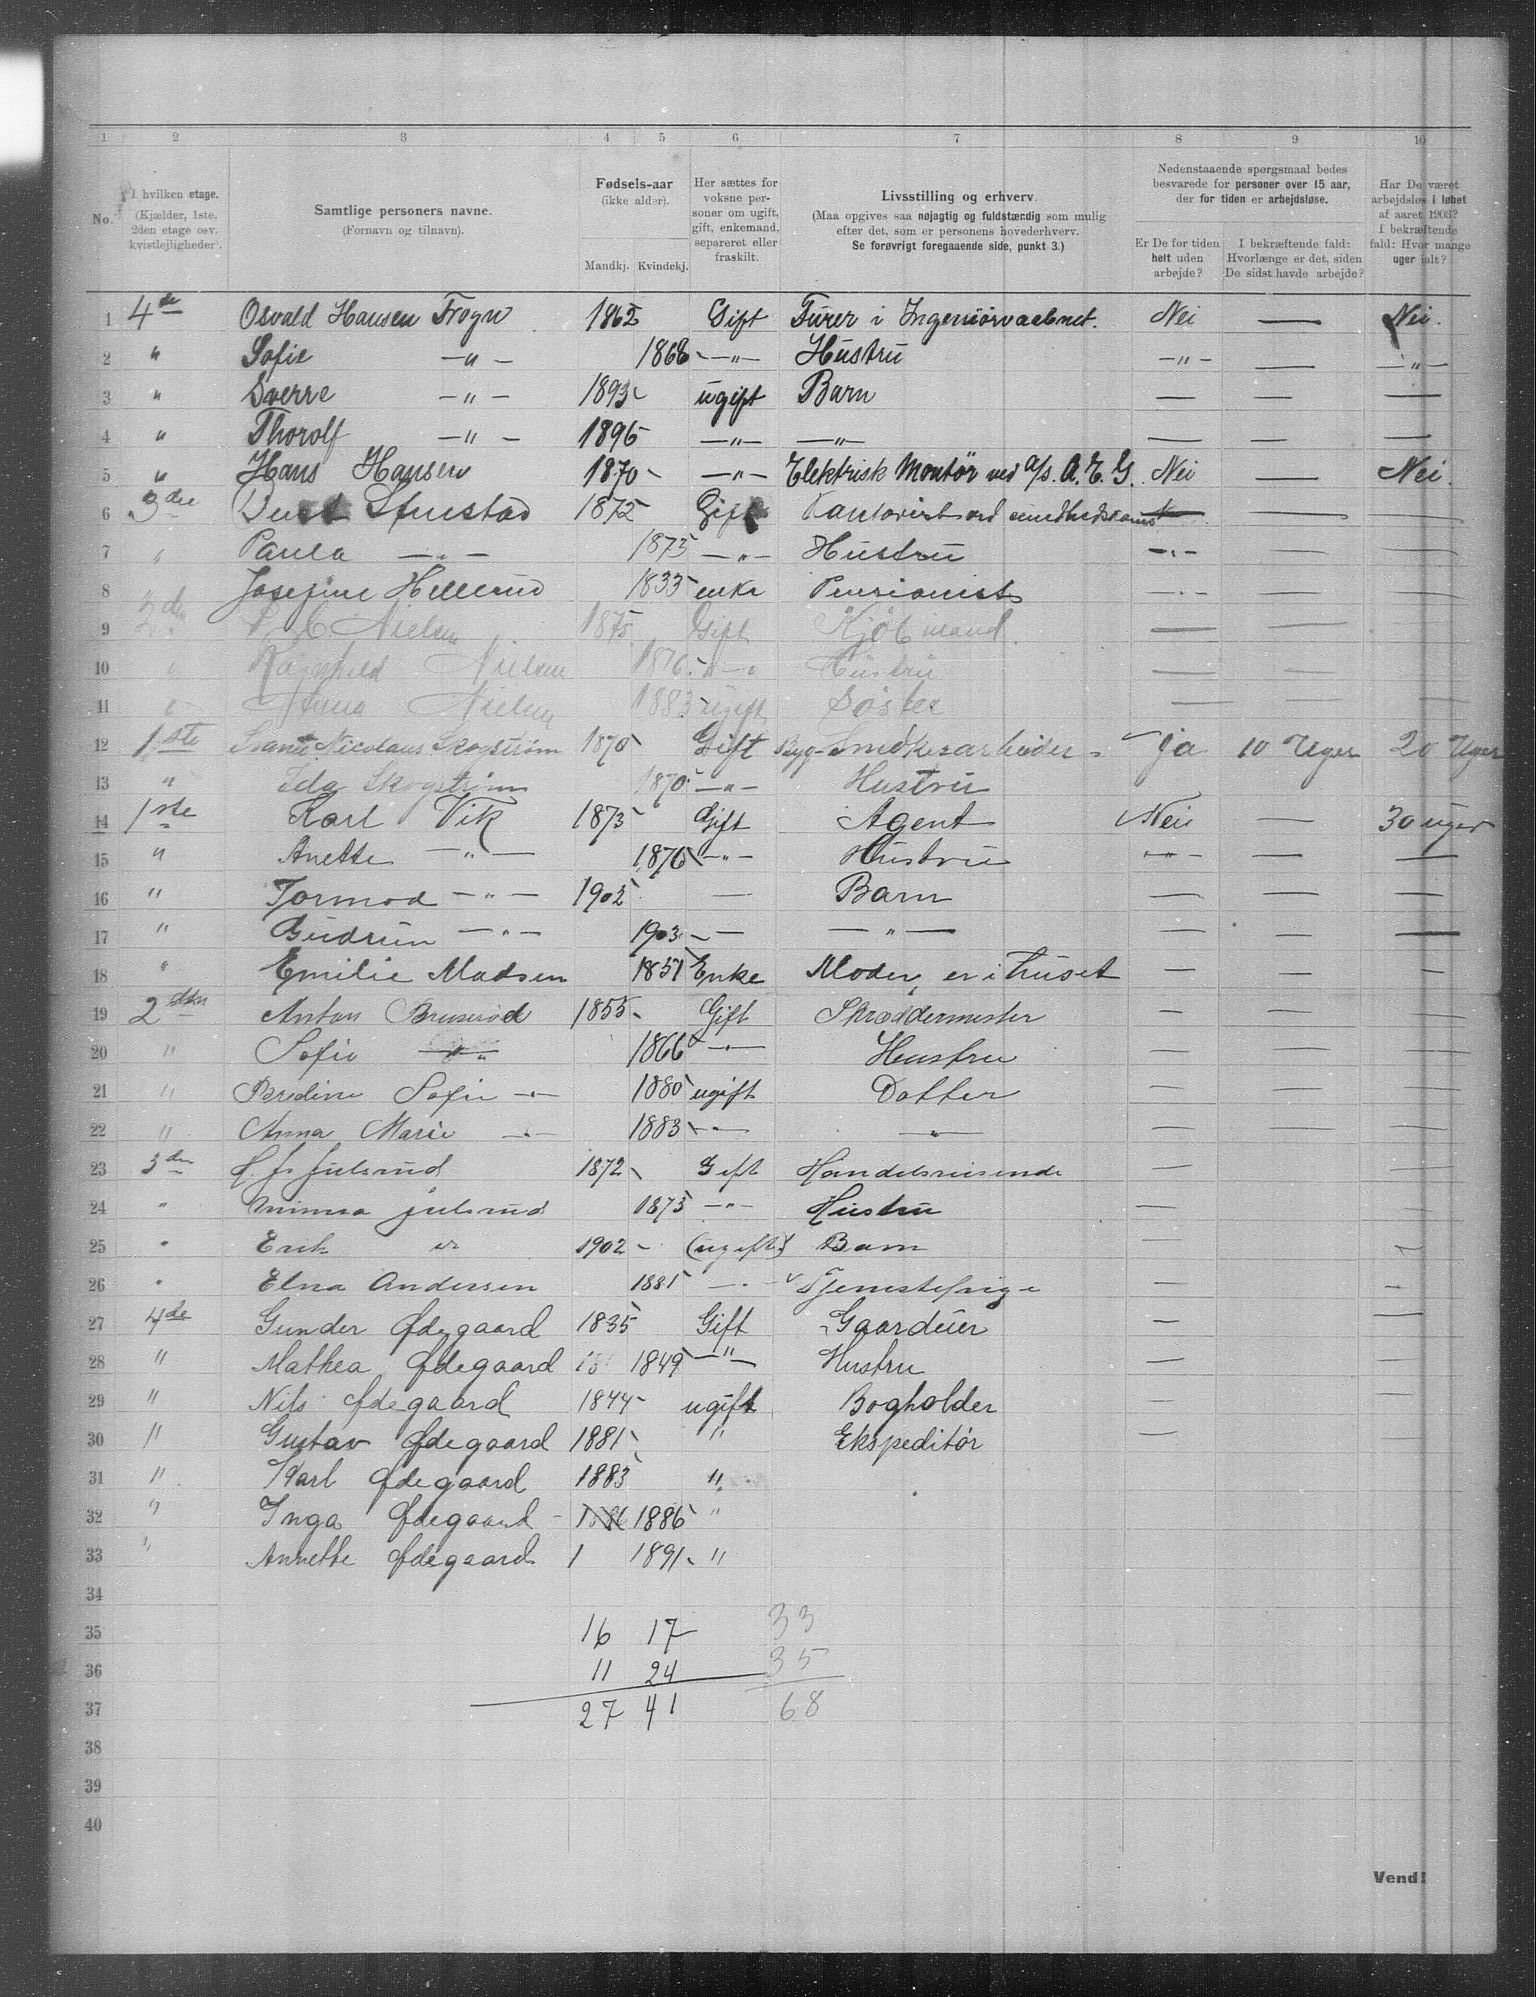 1 2 3 4 5 6 7 8 9 10
No.
I hvilken etage. (Kjælder, 1ste. 2den etage osv. kvistleiligheder).
Samtlige personers navne. (Fornavn og tilnavn).
Fødsels-aar (ikke alder). Mandkj. Kvindekj.
Her sættes for voksne personer om ugift, gift, enkemand, separeret eller fraskilt.
Livsstilling og erhverv.
(Maa opgives saa nøjagtig og fuldstændig som mulig efter det, som er personens hovederhverv.
Se forøvrigt foregaaende side, punkt 3.)
Nedenstaaende spørgsmaal bedes besvarede for personer over 15 aar, der for tiden er arbejdsløse.
Er De for tiden helt uden arbejde?
I bekræftende fald: Hvorlænge er det, siden De sidst havde arbejde?
Har De været arbejdsløs i løbet af aaret 1903? I bekræftende fald: Hvor mange uger ialt?
1 4de Osvald Hansen Frogn 1862 Gift Furer i Ingeniørvaabnet. Nei — Nei.
2 " Sofie —"— 1868 —"— Hustru —"— — —"—
3 " Sverre —"— 1893 ugift Barn — — —
4 " Thorolf —"— 1896 —"— —"— — — —
5 " Hans Hansen 1870 —"— Elektrisk Montør ved A/s. A. E. G. Nei — Nei.
6 3die Stustad 1872 Gift Kantorist — —
7 " Paula —"— 1875 —"— Hustru —"— — —
8 Josefine Hellerud 1833 enke Pensionist —"— — —
9 2den Nielsen 1875 Gift Kjøbmand. — — —
10 " Ragnhild Nielsen 1876 —"— Hustru — — —
11 " Anna Nielsen 1883 ugift Søster — — —
12 1ste Nicolaus Skogstrøm 1870 Gift Byg-Snedkerarbeider Ja 10 Uger 20 Uger
13 " Ida Skogstrøm 1870 —"— Hustru
14 1ste Karl Vik 1873 Gift Agent Nei — 30 uger
15 " Anette —"— 1876 —"— Hustru —"— — —
16 " Tormod —"— 1902 — Barn — — —
17 " Gudrun —"— 1903 — —"— — — —
18 " Emilie Madsen 1851 Enke Moder, er i huset — — —
19 2den Anton Bruserød 1855 Gift Skræddermester — — —
20 " Sofie —"— 1866 —"— Hustru — — —
21 " Beredine Sofie —"— 1880 ugift Datter — — —
22 " Anna Marie —"— 1883 —"— —"— — — —
23 3den H. J. Julsrud 1872 Gift Handelsreisende — —
24 " Minna Julsrud 1875 —"— Hustru — —
25 " Erik " 1902 (ugift) Barn — —
26 " Elna Andersen 1881 —"— Tjenestepige — —
27 4de Gunder Ødegaard 1835 Gift Gaardeier — —
28 " Mathea Ødegaard 1849 —"— Hustru — —
29 " Nils Ødegaard 1844 ugift Bogholder — —
30 " Gustav Ødegaard 1881 " Ekspeditør —
31 " Karl Ødegaard 1883 "
32 " Inga Ødegaard 1886 1886 "
33 " Annette Ødegaard 1 1891 "
34
35 16 17 33
36 11 24 35
37 27 41 68
38
39
40
Vend!